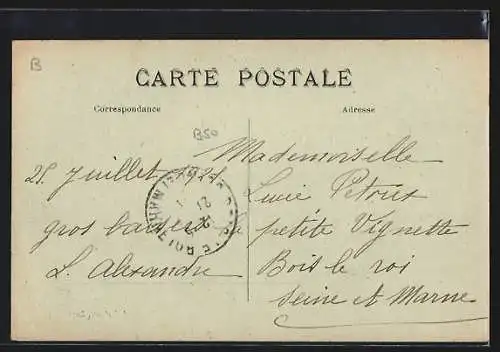 B
CARTE POSTALE
Correspondance
Adresse
B50
Mademoiselle
25 juillet 1921
Lucie Petout
gros baisers de
petite Vignette
L. Alexandre
Bois le roi
Seine et Marne